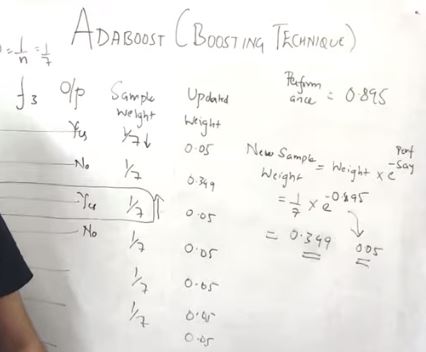 ADABOOST (BOOSTING TECHNIQUE)
= 1/n = 1/7
f3 O/p Sample Weight Updated Weight
Performance = 0.895
Yes 1/7 ↓ 0.05
No 1/7 0.349
Yes 1/7 ↑ 0.05
No 1/7 0.05
1/7 0.05
1/7 0.05
0.05
New Sample Weight = Weight × e^Perf -Say
= 1/7 × e^-0.895
= 0.349 0.05